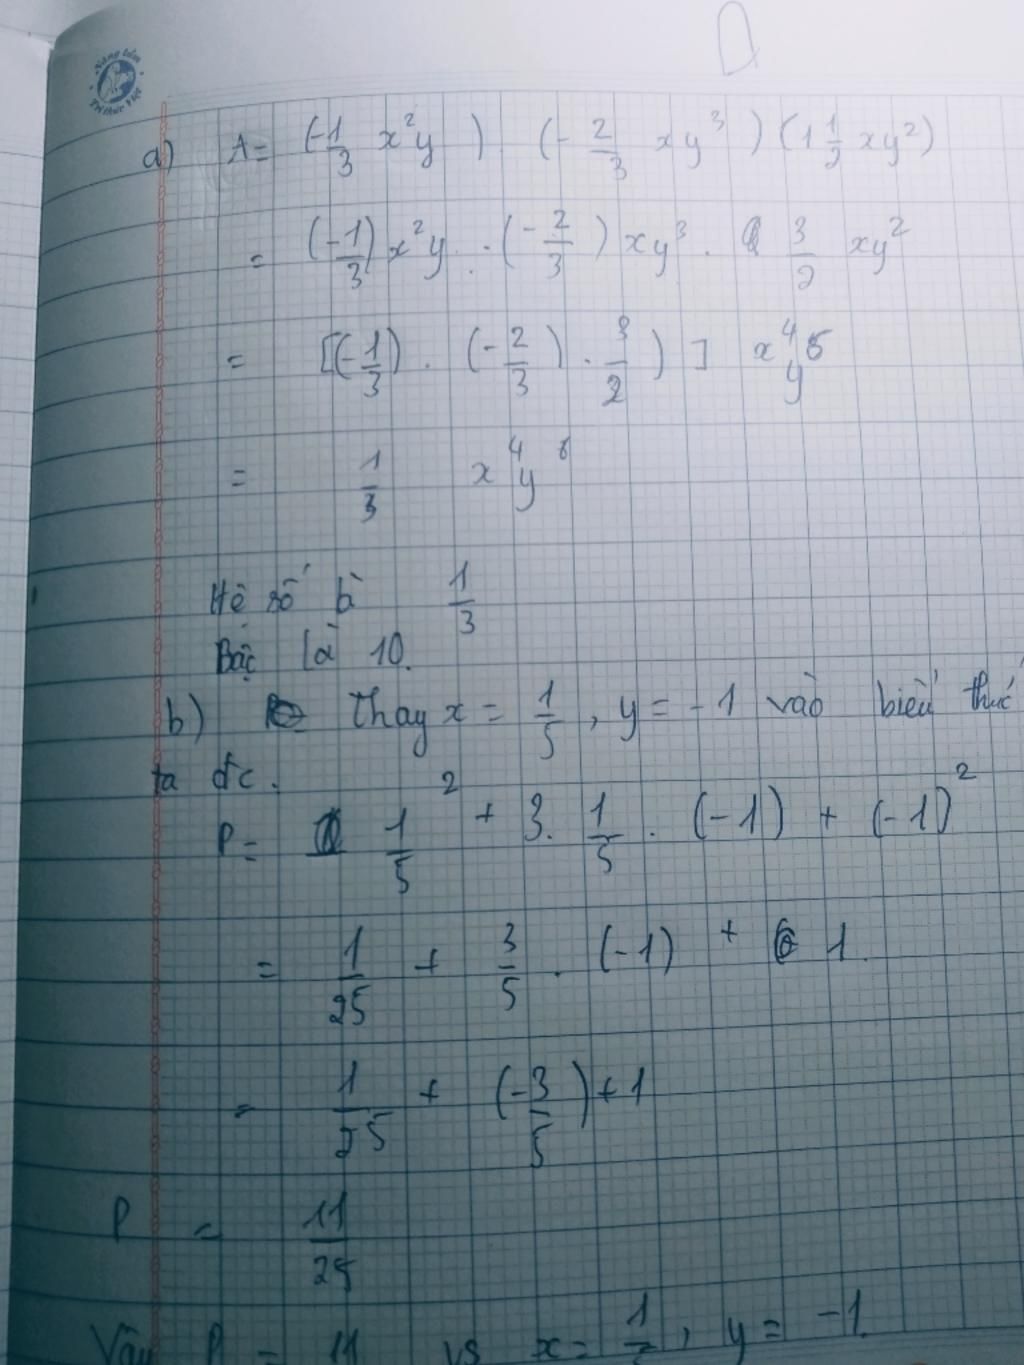 Nâng tầm
Tri thức Việt
a) A = (-1/3 x²y) (-2/3 xy³) (1 1/2 xy²)
= (-1/3) x²y . (-2/3) xy³ . 3/2 xy²
= [(-1/3) . (-2/3) . 3/2)] x⁴y⁶
= 1/3 x⁴y⁶
Hệ số là 1/3
Bậc là 10.
b) Thay x = 1/5, y = -1 vào biểu thức
ta đc.
P = 1/5² + 3. 1/5 . (-1) + (-1)²
= 1/25 + 3/5 . (-1) + 1.
= 1/25 + (-3/5) + 1
P = 11/25
Vậy P = 11 vs x = 1/5, y = -1.